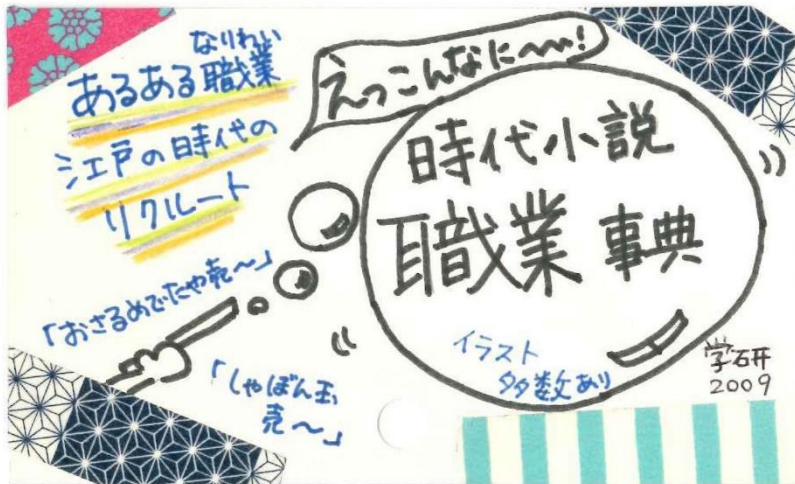 なりわい
あるある職業
江戸の時代の
リクルート
えっこんなに〜!
時代小説
職業 事典
イラスト
多数あり
学研
2009
「おさるめでたや売〜」
「しゃぼん玉
売〜」